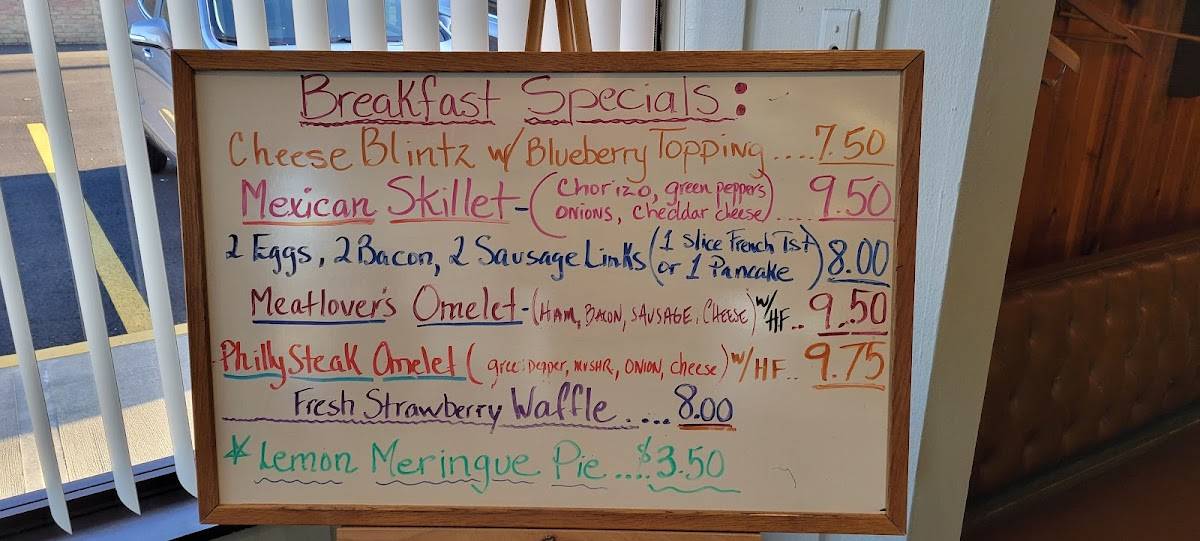 Breakfast Specials:
Cheese Blintz w/ Blueberry Topping ....7.50
Mexican Skillet-(Chorizo, green peppers
onions, cheddar cheese).....9.50
2 Eggs, 2 Bacon, 2 Sausage Links (1 slice French Tst
or 1 Pancake) 8.00
Meatlover's Omelet-(Ham, Bacon, Sausage, Cheese) w/HF.. 9.50
Philly Steak Omelet (pepper, mushr., onion, cheese) w/HF.. 9.75
Fresh Strawberry Waffle.... 8.00
* Lemon Meringue Pie....$3.50